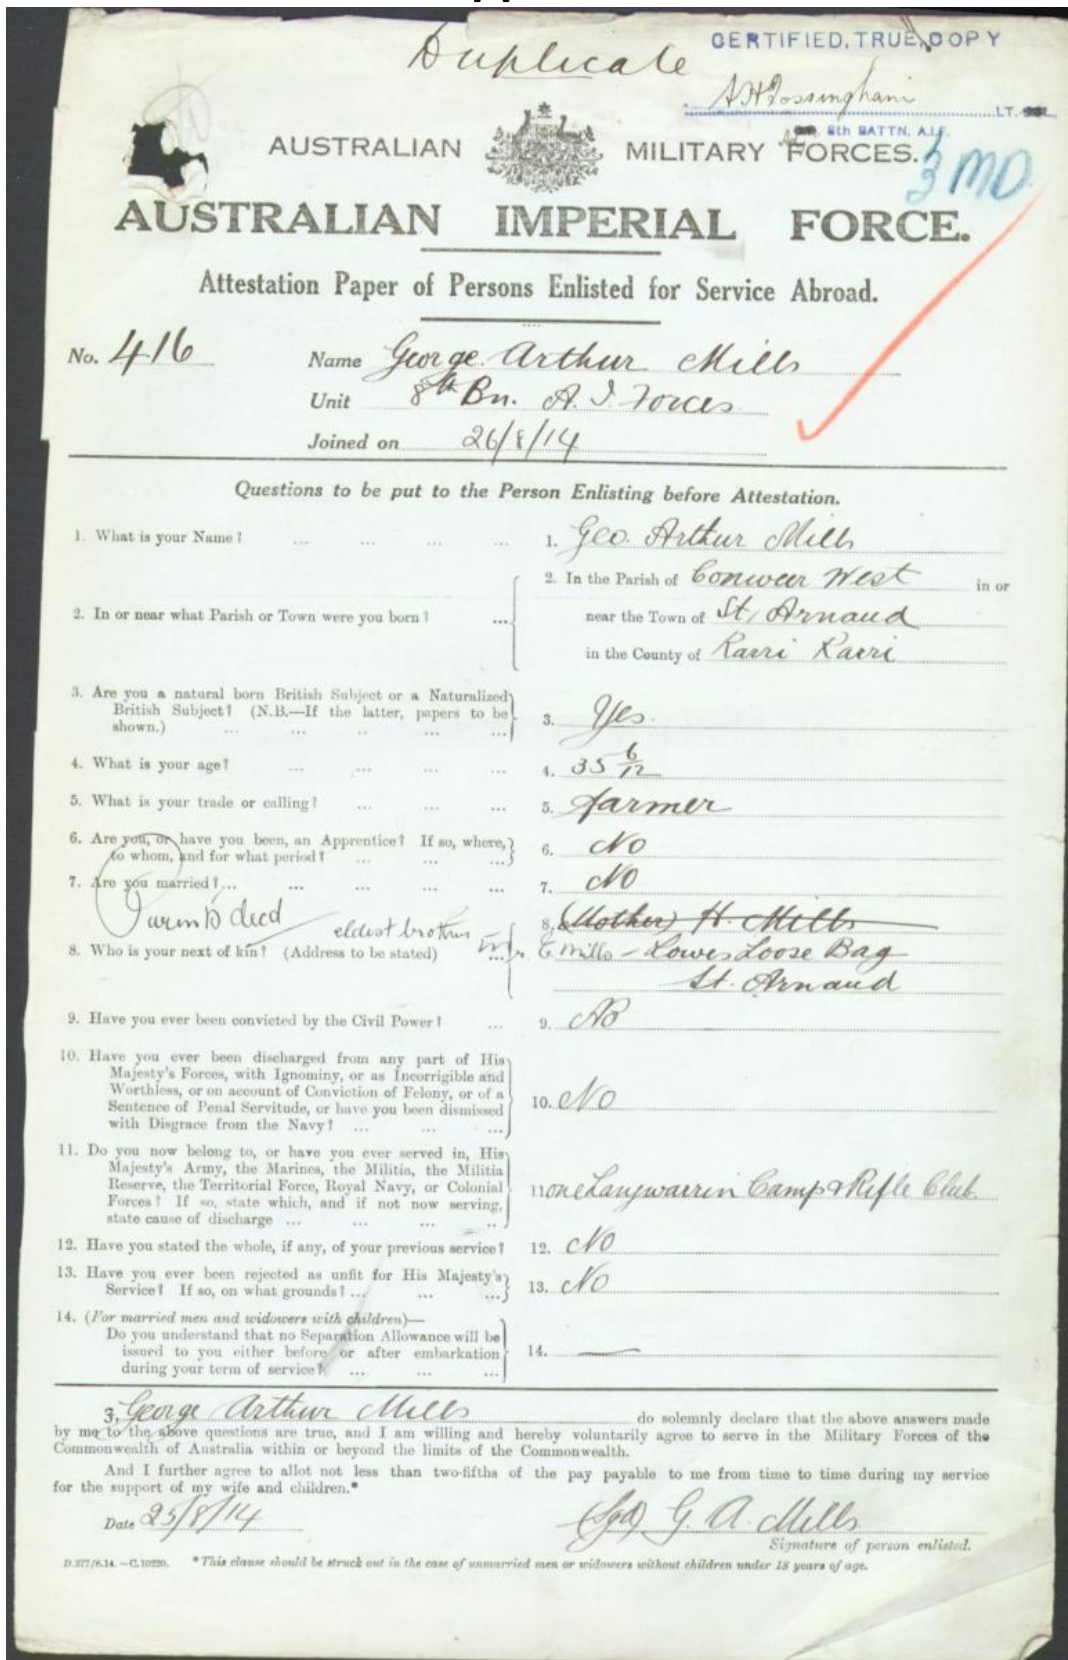 Duplicate
CERTIFIED TRUE COPY
LT.
8th BATTN. A.I.F.
AUSTRALIAN MILITARY FORCES.
3 MD
AUSTRALIAN IMPERIAL FORCE.
Attestation Paper of Persons Enlisted for Service Abroad.
No. 416 Name George Arthur Mills
Unit 8th Bn. A. I. Forces
Joined on 26/8/14
Questions to be put to the Person Enlisting before Attestation.
1. What is your Name? ... ... ... ... 1. Geo Arthur Mills
2. In the Parish of West in or
2. In or near what Parish or Town were you born? ... near the Town of St. Arnaud
in the County of
3. Are you a natural born British Subject or a Naturalized
British Subject? (N.B.—If the latter, papers to be
shown.) ... ... ... ... ... 3. Yes.
4. What is your age? ... ... ... ... 4. 35 6/12
5. What is your trade or calling? ... ... ... 5. farmer
6. Are you, or have you been, an Apprentice? If so, where,
to whom, and for what period? ... ... ... 6. No
7. Are you married? ... ... ... ... ... 7. No
decd eldest brother 8. (Mother) H. Mills
8. Who is your next of kin? (Address to be stated) ... E Mills - Lower Loose Bag
St. Arnaud
9. Have you ever been convicted by the Civil Power? ... 9. No
10. Have you ever been discharged from any part of His
Majesty's Forces, with Ignominy, or as Incorrigible and
Worthless, or on account of Conviction of Felony, or of a
Sentence of Penal Servitude, or have you been dismissed
with Disgrace from the Navy? ... ... ... 10. No
11. Do you now belong to, or have you ever served in, His
Majesty's Army, the Marines, the Militia, the Militia
Reserve, the Territorial Force, Royal Navy, or Colonial
Forces? If so, state which, and if not now serving,
state cause of discharge ... ... ... .. 11 one Langwarrin Camp & Rifle Club
12. Have you stated the whole, if any, of your previous service? 12. No
13. Have you ever been rejected as unfit for His Majesty's
Service? If so, on what grounds? ... ... ... 13. No
14. (For married men and widowers with children)—
Do you understand that no Separation Allowance will be
issued to you either before or after embarkation
during your term of service? ... ... ... 14. —
I, George Arthur Mills do solemnly declare that the above answers made
by me to the above questions are true, and I am willing and hereby voluntarily agree to serve in the Military Forces of the
Commonwealth of Australia within or beyond the limits of the Commonwealth.
And I further agree to allot not less than two-fifths of the pay payable to me from time to time during my service
for the support of my wife and children.*
Date 25/8/14 (Sgd) G. A. Mills
Signature of person enlisted.
D.277/8.14.—C.10220. *This clause should be struck out in the case of unmarried men or widowers without children under 18 years of age.